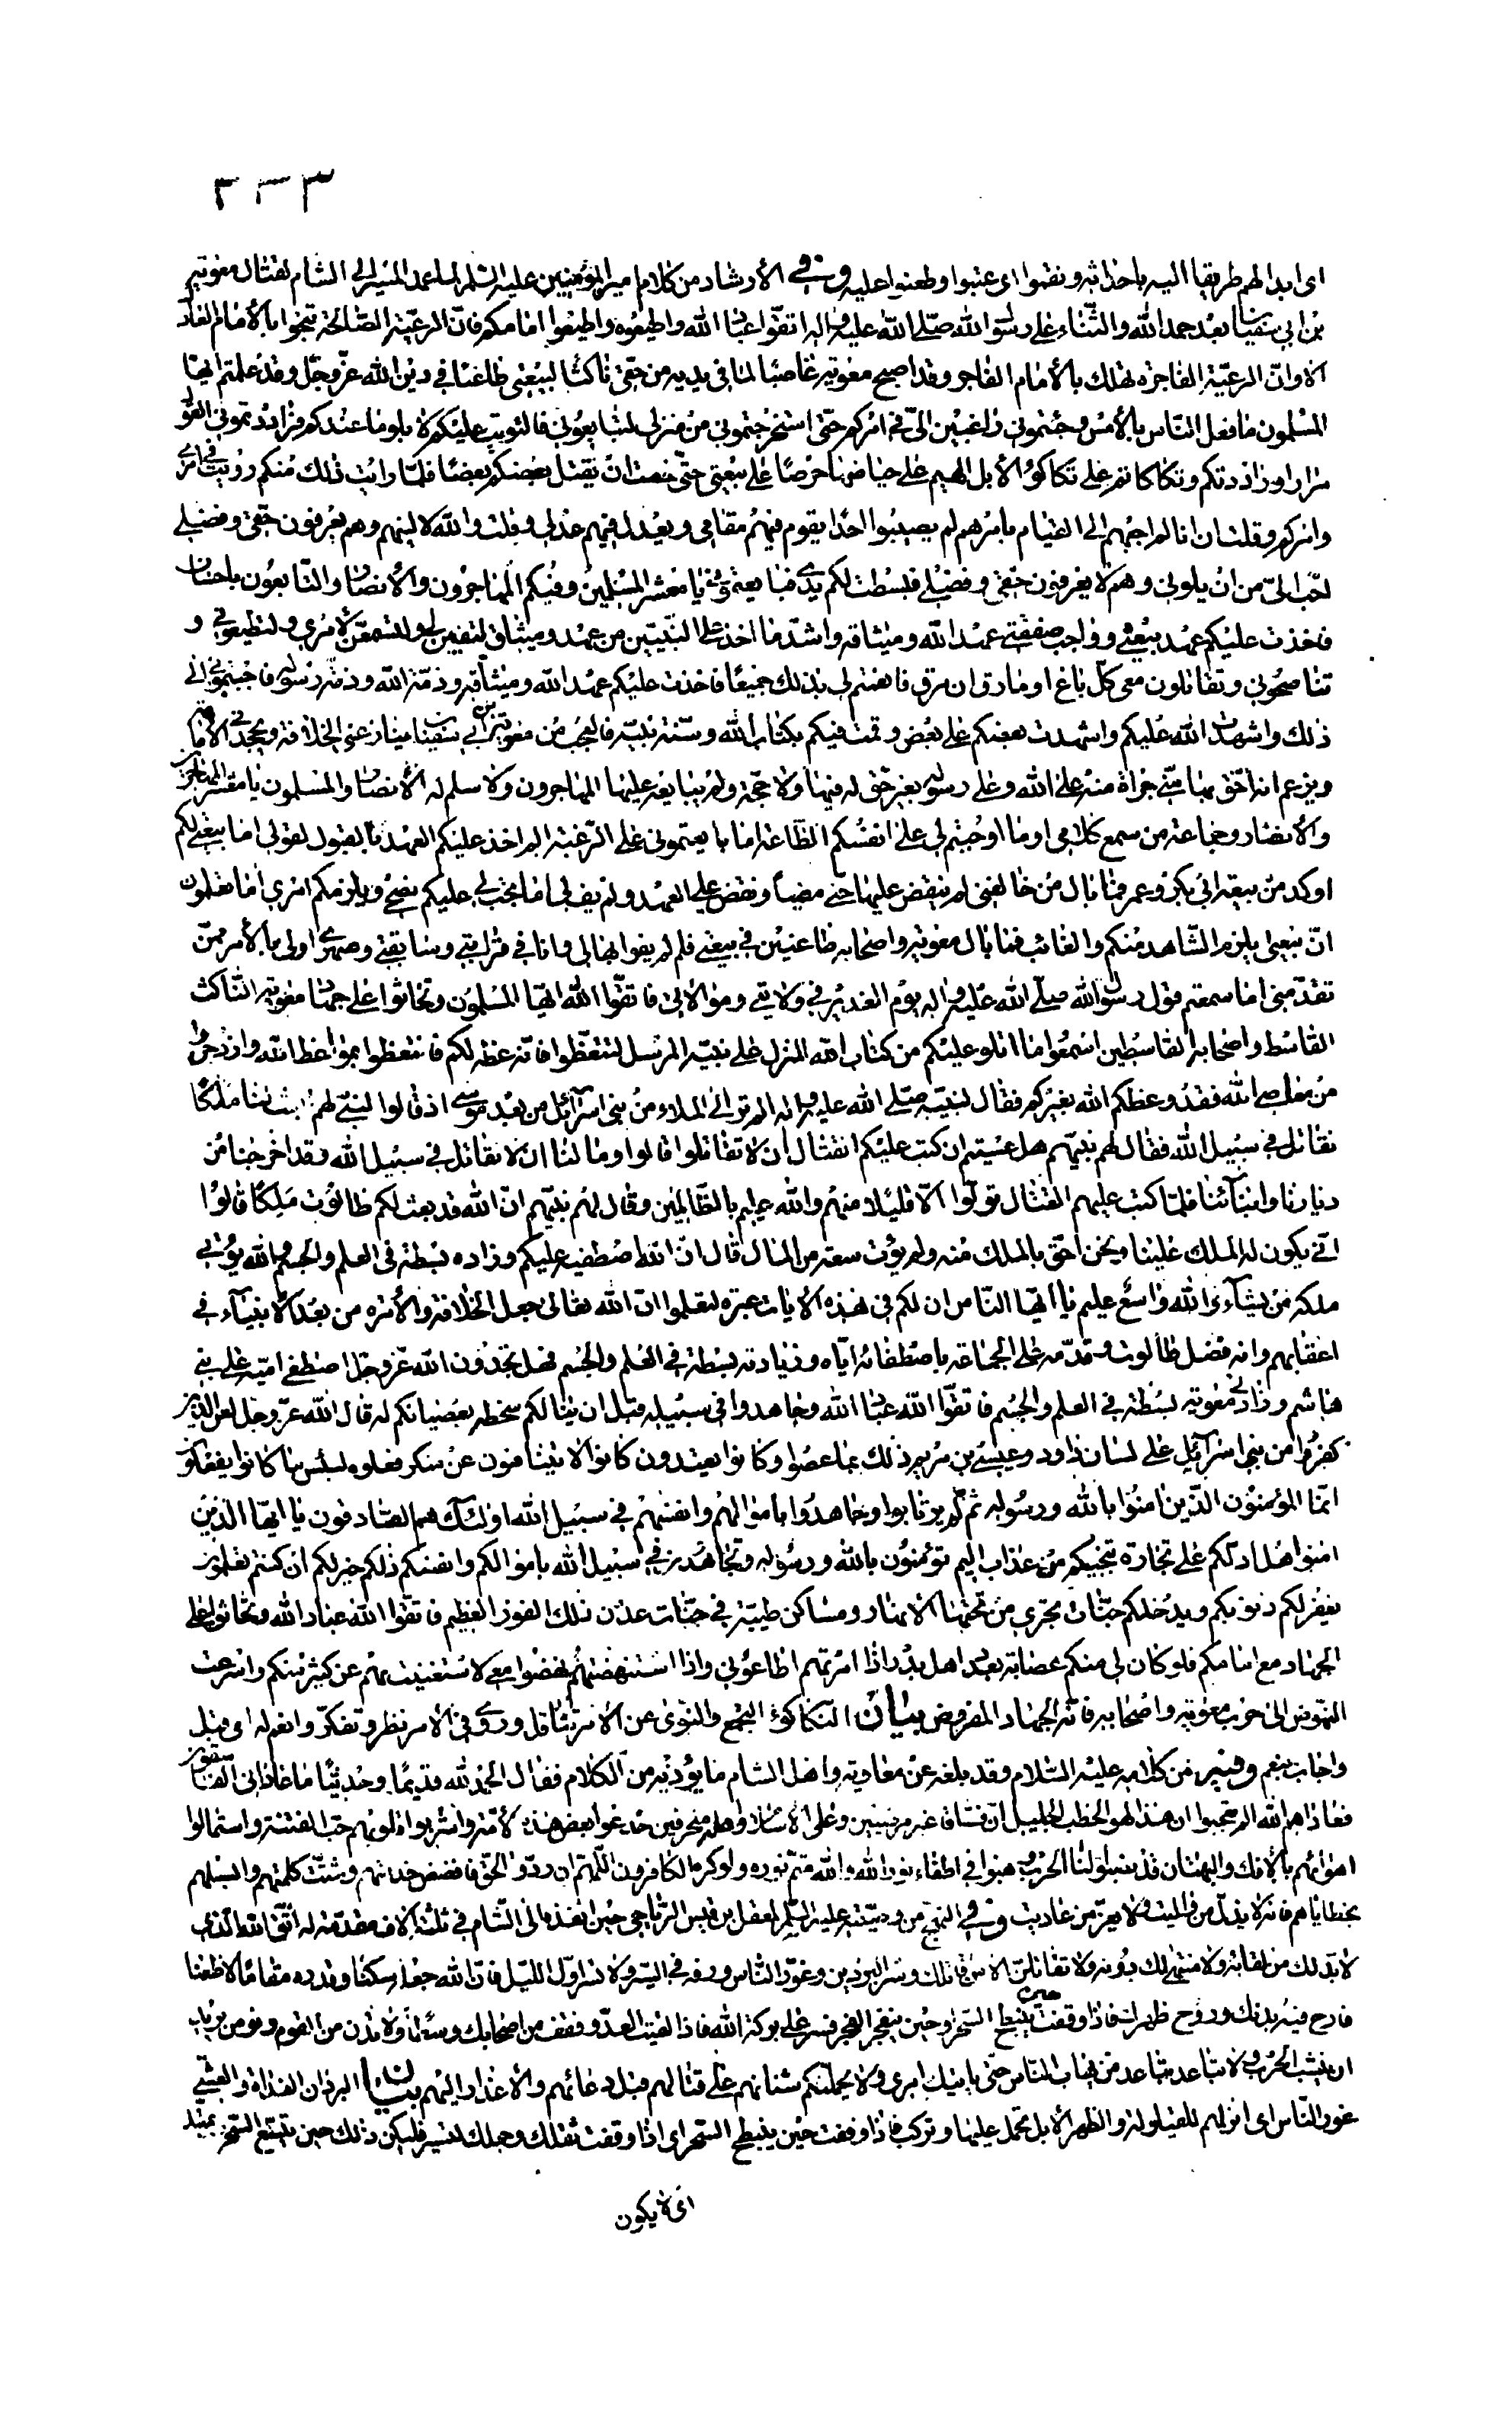 ٣٣٣
اى ابدا لهم طريقا اليه باحداثه ونقموا اى عتبوا وطعنوا عليه وفى الأرشاد من كلام امير المؤمنين عليه السّلم لما عمد المسير الى الشام لقتال معوية
بن ابى سفيان بعد حمد الله والثّناء على رسول الله صلّى الله عليه واله اتقوا عباد الله واطيعوه واطيعوا امامكم فانّ الرعيّة الصّالحة تنجوا بالأمام العادل
الا وانّ الرعيّة الفاجرة تهلك بالأمام الفاجر وقد اصبح معوية غاصبا لما فى يديه من حقّى ناكثا لبيعتى طاعنا فى دين الله عزّ وجلّ وقد علمتم ايها
المسلمون ما فعل الناس بالأمس وجئتمونى راغبين الىّ فى امركم حتّى استخرجتمونى من منزلى لتبايعونى فالتويت عليكم لأبلو ما عندكم فراددتمونى القول
مرارا وراددتكم وتكاكاتم على تكاكؤ الأبل الهيم على حياضها حرصا على بيعتى حتّى خفت ان يقتل بعضكم بعضا فلمّا رايت ذلك منكم رويت فى امرى
وامركم وقلت ان انا لم اجبهم الى القيام بامرهم لم يصيبوا احدا يقوم فيهم مقامى ويعدل فيهم عدلى وقلت والله لالينهم وهم يعرفون حقّى وفضلى
احبّ الىّ من ان يلونى وهم لا يعرفون حقّى وفضلى فبسطت لكم يدى فبايعتمونى يا معشر المسلمين وفيكم المهاجرون والأنصار والتابعون باحسان
فاخذت عليكم عهد بيعتى وواجب صفقتى عهد الله وميثاقه واشدّ ما اخذ على النّبيّين من عهد وميثاق لتفين لى ولتسمعنّ لأمرى ولتطيعونى و
تناصحونى وتقاتلون معى كلّ باغ او مارق ان مرق فانعمتم لى بذلك جميعا فاخذت عليكم عهد الله وميثاقه وذمّة الله وذمّة رسوله فاجبتمونى الى
ذلك واشهدت الله عليكم واشهدت بعضكم على بعض وقمت فيكم بكتاب الله وسنّة نبيّه فالعجب من معوية بن ابى سفيان ينازعنى الخلافة ويجحدنى الأمامة
ويزعم انه احقّ بها منّى جراة منه على الله وعلى رسوله بغير حقّ له فيها ولا حجّة ولم يبايعه عليها المهاجرون ولا سلم له الأنصار والمسلمون يا معشر المهاجرين
والأنصار وجماعة من سمع كلامى اوما اوجبتم لى على انفسكم الطّاعة اما بايعتمونى على الرّغبة الم اخذ عليكم العهد بالقبول لقولى اما بيعتى لكم
اوكد من بيعة ابى بكر وعمر فما بال من خالفنى لم ينقض عليهما حتّى مضيا ونقض علىّ العهد ولم يف لى اما يجب لى عليكم نصحى ويلزمكم امرى اما تعلمون
انّ بيعتى يلزم الشّاهد منكم والغائب فما بال معوية واصحابه طاعنين فى بيعتى فلم لم يفوا بها لى وانا فى قرابتى وسابقتى وصهرى اولى بالأمر ممّن
تقدّمنى اما سمعتم قول رسول الله صلّى الله عليه واله يوم الغدير فى ولايتى وموالاتى فاتقوا الله ايّها المسلمون وتحاثوا على جهاد معوية الناكث
القاسط واصحابه القاسطين اسمعوا ما اتلو عليكم من كتاب الله المنزل على نبيّه المرسل لتتعظوا فانّه عظة لكم فانتفعوا بمواعظ الله وازدجروا
من معاصى الله فقد وعظكم الله بغيركم فقال لنبيّه صلّى الله عليه واله الم تر الى الملاء من بنى اسرائيل من بعد موسى اذ قالوا لنبىّ لهم ابعث لنا ملكا
نقاتل فى سبيل الله فقال لهم نبيّهم هل عسيتم ان كتب عليكم القتال ان لا تقاتلوا قالوا وما لنا ان لا نقاتل فى سبيل الله وقد اخرجنا من
ديارنا وابنائنا فلمّا كتب عليهم القتال تولّوا الّا قليلا منهم والله عليم بالظّالمين وقال لهم نبيّهم انّ الله قد بعث لكم طالوت ملكا قالوا
انّى يكون له الملك علينا ونحن احقّ بالملك منه ولم يؤت سعة من المال قال انّ الله اصطفيه عليكم وزاده بسطة فى العلم والجسم والله يؤتى
ملكه من يشاء والله واسع عليم يا ايّها النّاس ان لكم فى هذه الأيات عبرة لتعلموا انّ الله تعالى جعل الخلافة والأمرة من بعد الأنبياء فى
اعقابهم وانه فضل طالوت وقدّمه على الجماعة باصطفائه ايّاه وزيادته بسطة فى العلم والجسم فهل تجدون الله عزّ وجلّ اصطفى اميّة على بنى
هاشم وزاد معوية علىّ بسطة فى العلم والجسم فاتقوا الله عباد الله وجاهدوا فى سبيله قبل ان ينالكم سخطه بعصيانكم له قال الله عزّ وجل لعن الذين
كفروا من بنى اسرائيل على لسان داود وعيسى بن مريم ذلك بما عصوا وكانوا يعتدون كانوا لا يتناهون عن منكر فعلوه لبئس ما كانوا يفعلون
انمّا المؤمنون الذّين امنوا بالله ورسوله ثم لم يرتابوا وجاهدوا باموالهم وانفسهم فى سبيل الله اولئك هم الصّادقون يا ايّها الذين
امنوا هل ادلّكم على تجارة تنجيكم من عذاب اليم تؤمنون بالله ورسوله وتجاهدون فى سبيل الله باموالكم وانفسكم ذلكم خير لكم ان كنتم تعلمون
يغفر لكم ذنوبكم ويدخلكم جنّات تجرى من تحتها الانهار ومساكن طيبّة فى جنّات عدن ذلك الفوز العظيم فاتقوا الله عباد الله وتحاثوا على
الجهاد مع امامكم فلو كان لى منكم عصابة بعدد اهل بدر اذا امرتهم اطاعونى واذا استنهضتهم نهضوا معى لاستغنيت بهم عن كثير منكم واسرعت
النهوض الى حرب معوية واصحابه فانّه الجهاد المفروض بيان التكاكؤ التجمع والتوى عن الأمر تثاقل وروى فى الأمر نظر وتفكّر وانعم له اى قبل
واجاب بنعم وفيه من كلامه عليه السّلام وقد بلغه عن معاوية واهل الشام ما يؤذيه من الكلام فقال الحمد لله قديما وحديثا ما عادانى الفاسقون
فعاداهم الله الم تعجبوا ان هذا لهو الخطب الجليل انّ فساقا غير مرضيين وعلى الأسلام واهله منحرفين خدعوا بعض هذه الأمّة واشربوا قلوبهم حبّ الفتنة واستمالوا
اهوائهم بالأفك والبهتان قد نصبوا لنا الحرب وهبوا فى اطفاء نور الله والله متمّ نوره ولو كره الكافرون اللّهم ان ردّوا الحقّ فافضض خدمتهم وشتّت كلمتهم وابسلهم
بخطاياهم فانه لا يذلّ من واليت ولا يعزّ من عاديت وفى النهج من وصيّته عليه السّلم لمعقل بن قيس الرّياحى حين انفذه الى الشّام فى ثلثة الاف مقدّمة له اتّق الله الّذى
لا بدّ لك من لقائه ولا منتهى لك دونه ولا تقاتلنّ الّا من قاتلك وسر البردين وغوّر النّاس ورفّه فى السّير ولا تسر اوّل الليل فانّ الله جعله سكنا وقدره مقاما لا ظعنا
فارح فيه بدنك وروّح ظهرك فاذا وقفت حين ينبطح السّحر او حين ينفجر الفجر فسر على بركة الله فاذا لقيت العدّو فقف من اصحابك وسطا ولا تدن من القوم دنو من يريد
ان ينشب الحرب ولا تباعد تباعد من يهاب الناس حتّى ياتيك امرى ولا يحملنّكم شنانهم على قتالهم قبل دعائهم والأعذار اليهم بيان البردان الغداة والعشّى
غور النّاس اى انزل بهم للقيلولة والظهر الأبل تحمل عليها وتركب فاذا وقفت حين ينبطح السّحر اى اذا وقفت ثقلك وحملك لتسير فليكن ذلك حين يتسع السّحر يمتد
اى لا يكون